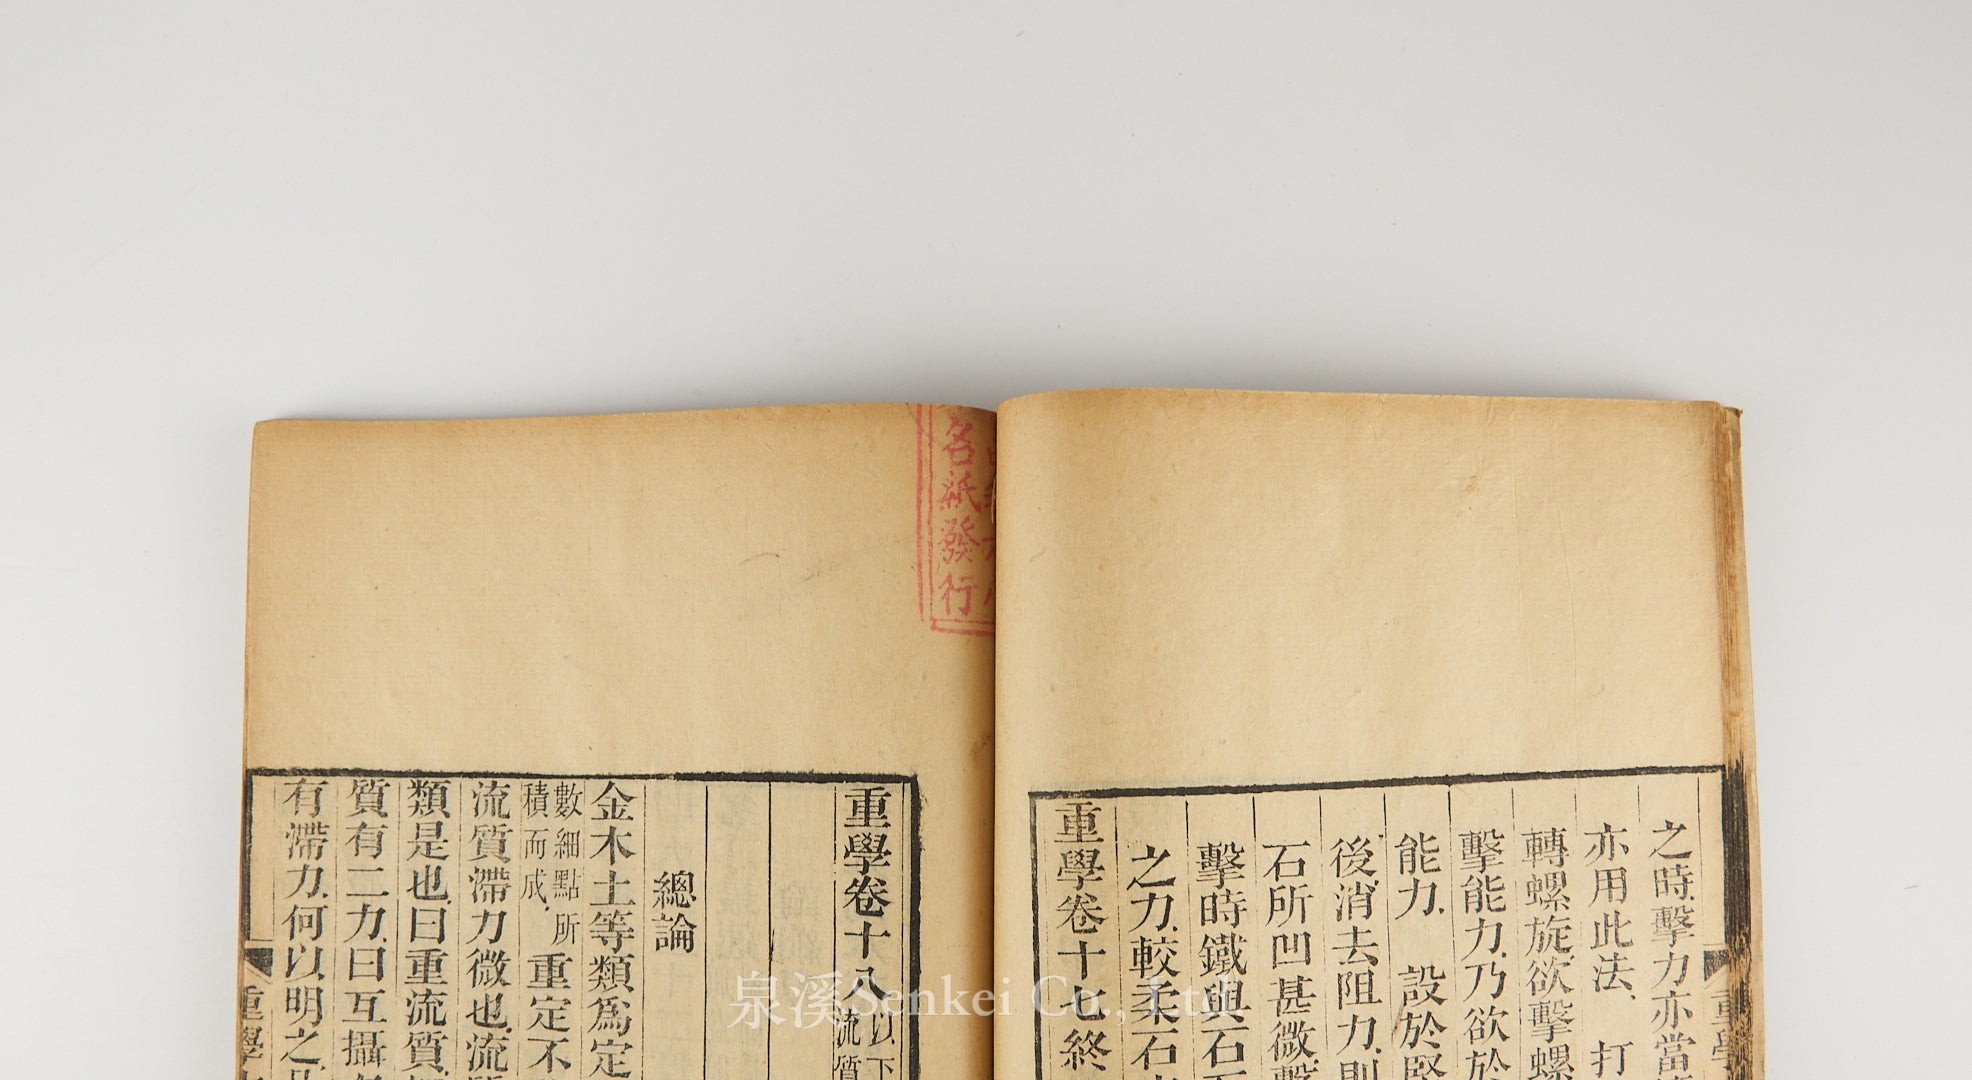 之時擊力亦當
亦用此法 打
轉螺旋欲擊螺
擊能力乃欲於
能力 設於堅
後消去阻力則
石所凹甚微擊
擊時鐵與石
之力較柔石
重學卷十七終
名紙發行
重學卷十八 以下
流質
總論
金木土等類為定
數細點所
積而成 重定不
流質滯力微也流
類是也曰重流質
質有二力曰互攝
有滯力何以明之
重學
泉溪Senkei Co., Ltd